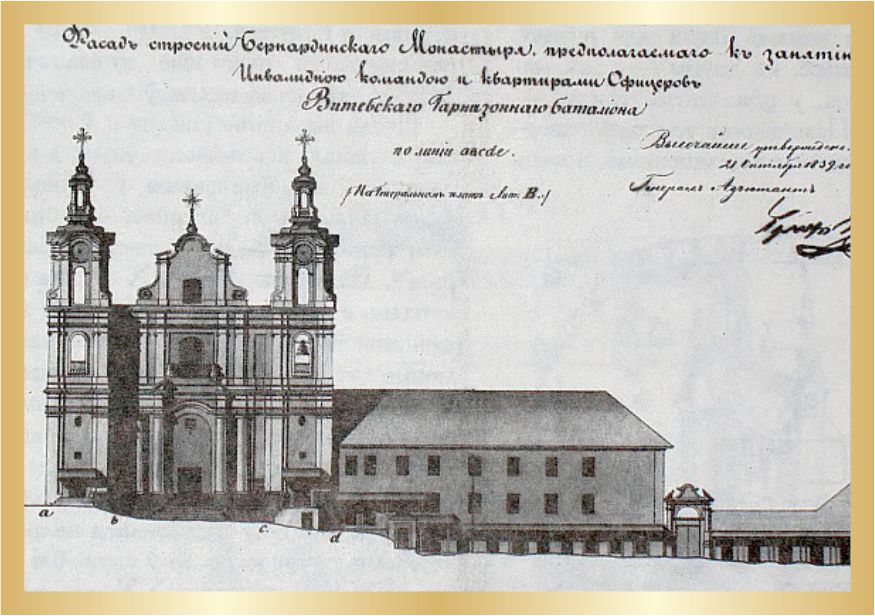 Фасадъ строеній Бернардинскаго Монастыря, предполагаемаго къ заняті
Инвалидною командою и квартирами Офицеровъ
Витебскаго Гарназоннаго баталона
по линіи abcde.
/ На Генеральномъ планѣ Лит. B. /
Высочайше утверждено.
21 Октября 1839 го
Генералъ Адъютантъ
a
b
c.
d